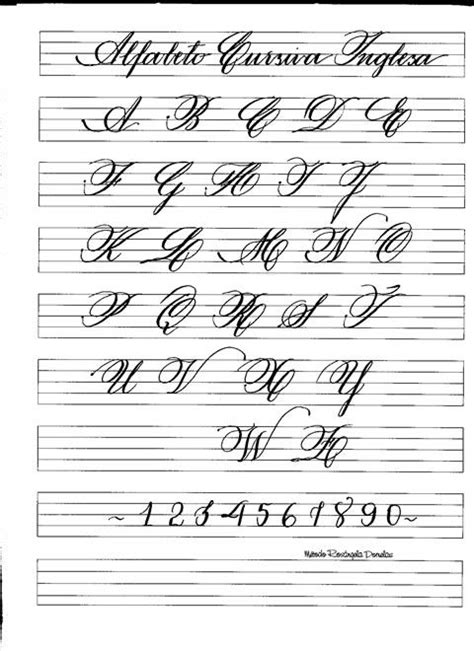 Alfabeto Cursiva Inglesa
A B C D E
F G H I J
K L M N O
P Q R S T
U V X Y
W Z
~ 1 2 3 4 5 6 7 8 9 0 ~
Método Rosângela Dornelas